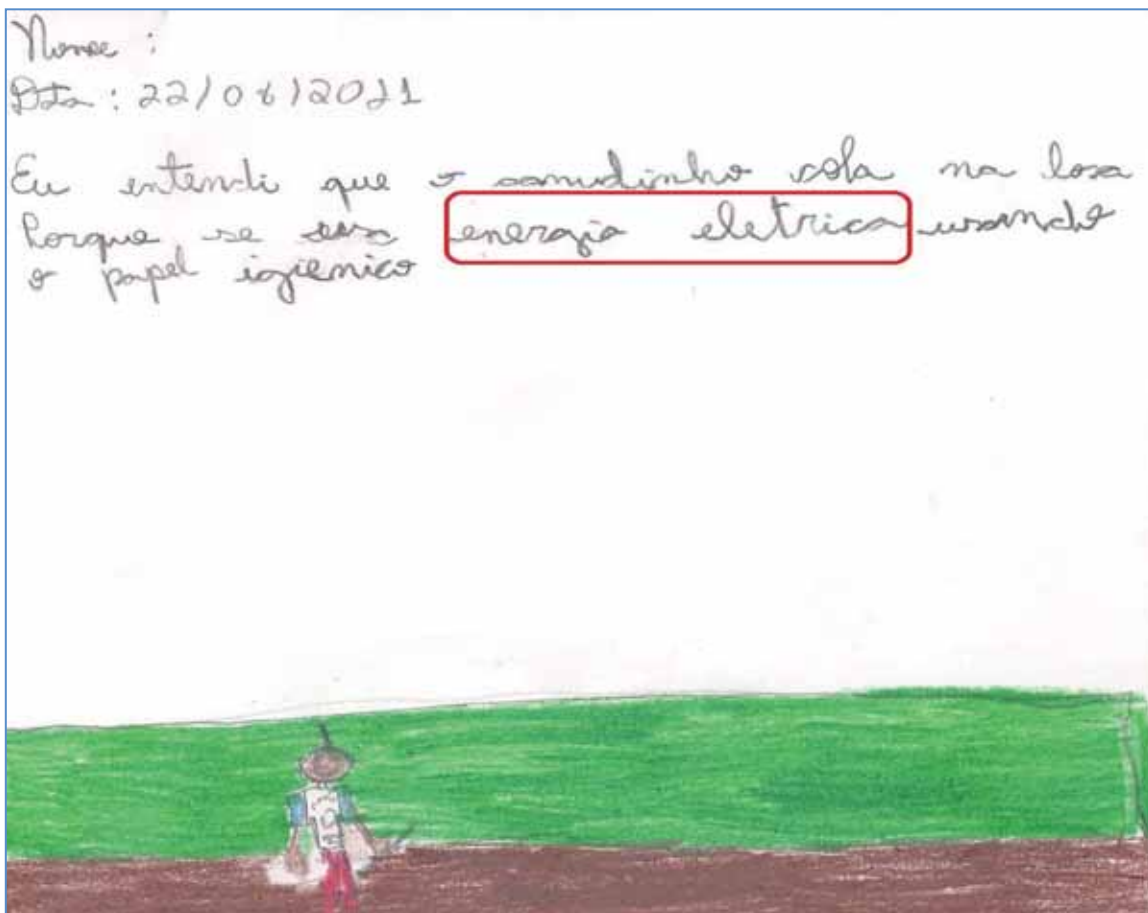 Nome :
Data : 22/06/2011
Eu entendi que o canudinho cola na losa
Porque se usa energia eletrica usando
o papel igienico